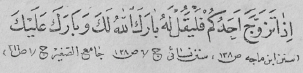 إِذَا تَزَوَّجَ أَحَدُكُمْ فَلْيُقَلْ لَهُ بَارَكَ اللّٰهُ لَكَ وَبَارَكَ عَلَيْكَ
(سنن ابن ماجه ص ۱۳۸، سنن نسائی ج ۷ ص ۱۳۸ جامع الصغیر ج ۱